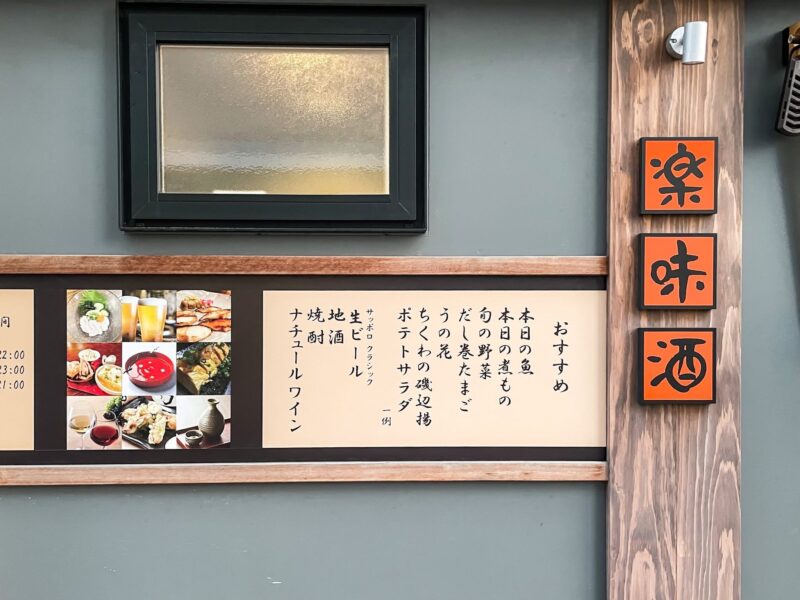 楽
味
酒
おすすめ
本日の魚
本日の煮もの
旬の野菜
だし巻たまご
うの花
ちくわの磯辺揚
ポテトサラダ
一例
サッポロ クラシック
生ビール
地酒
焼酎
ナチュールワイン
間
22:00
23:00
21:00